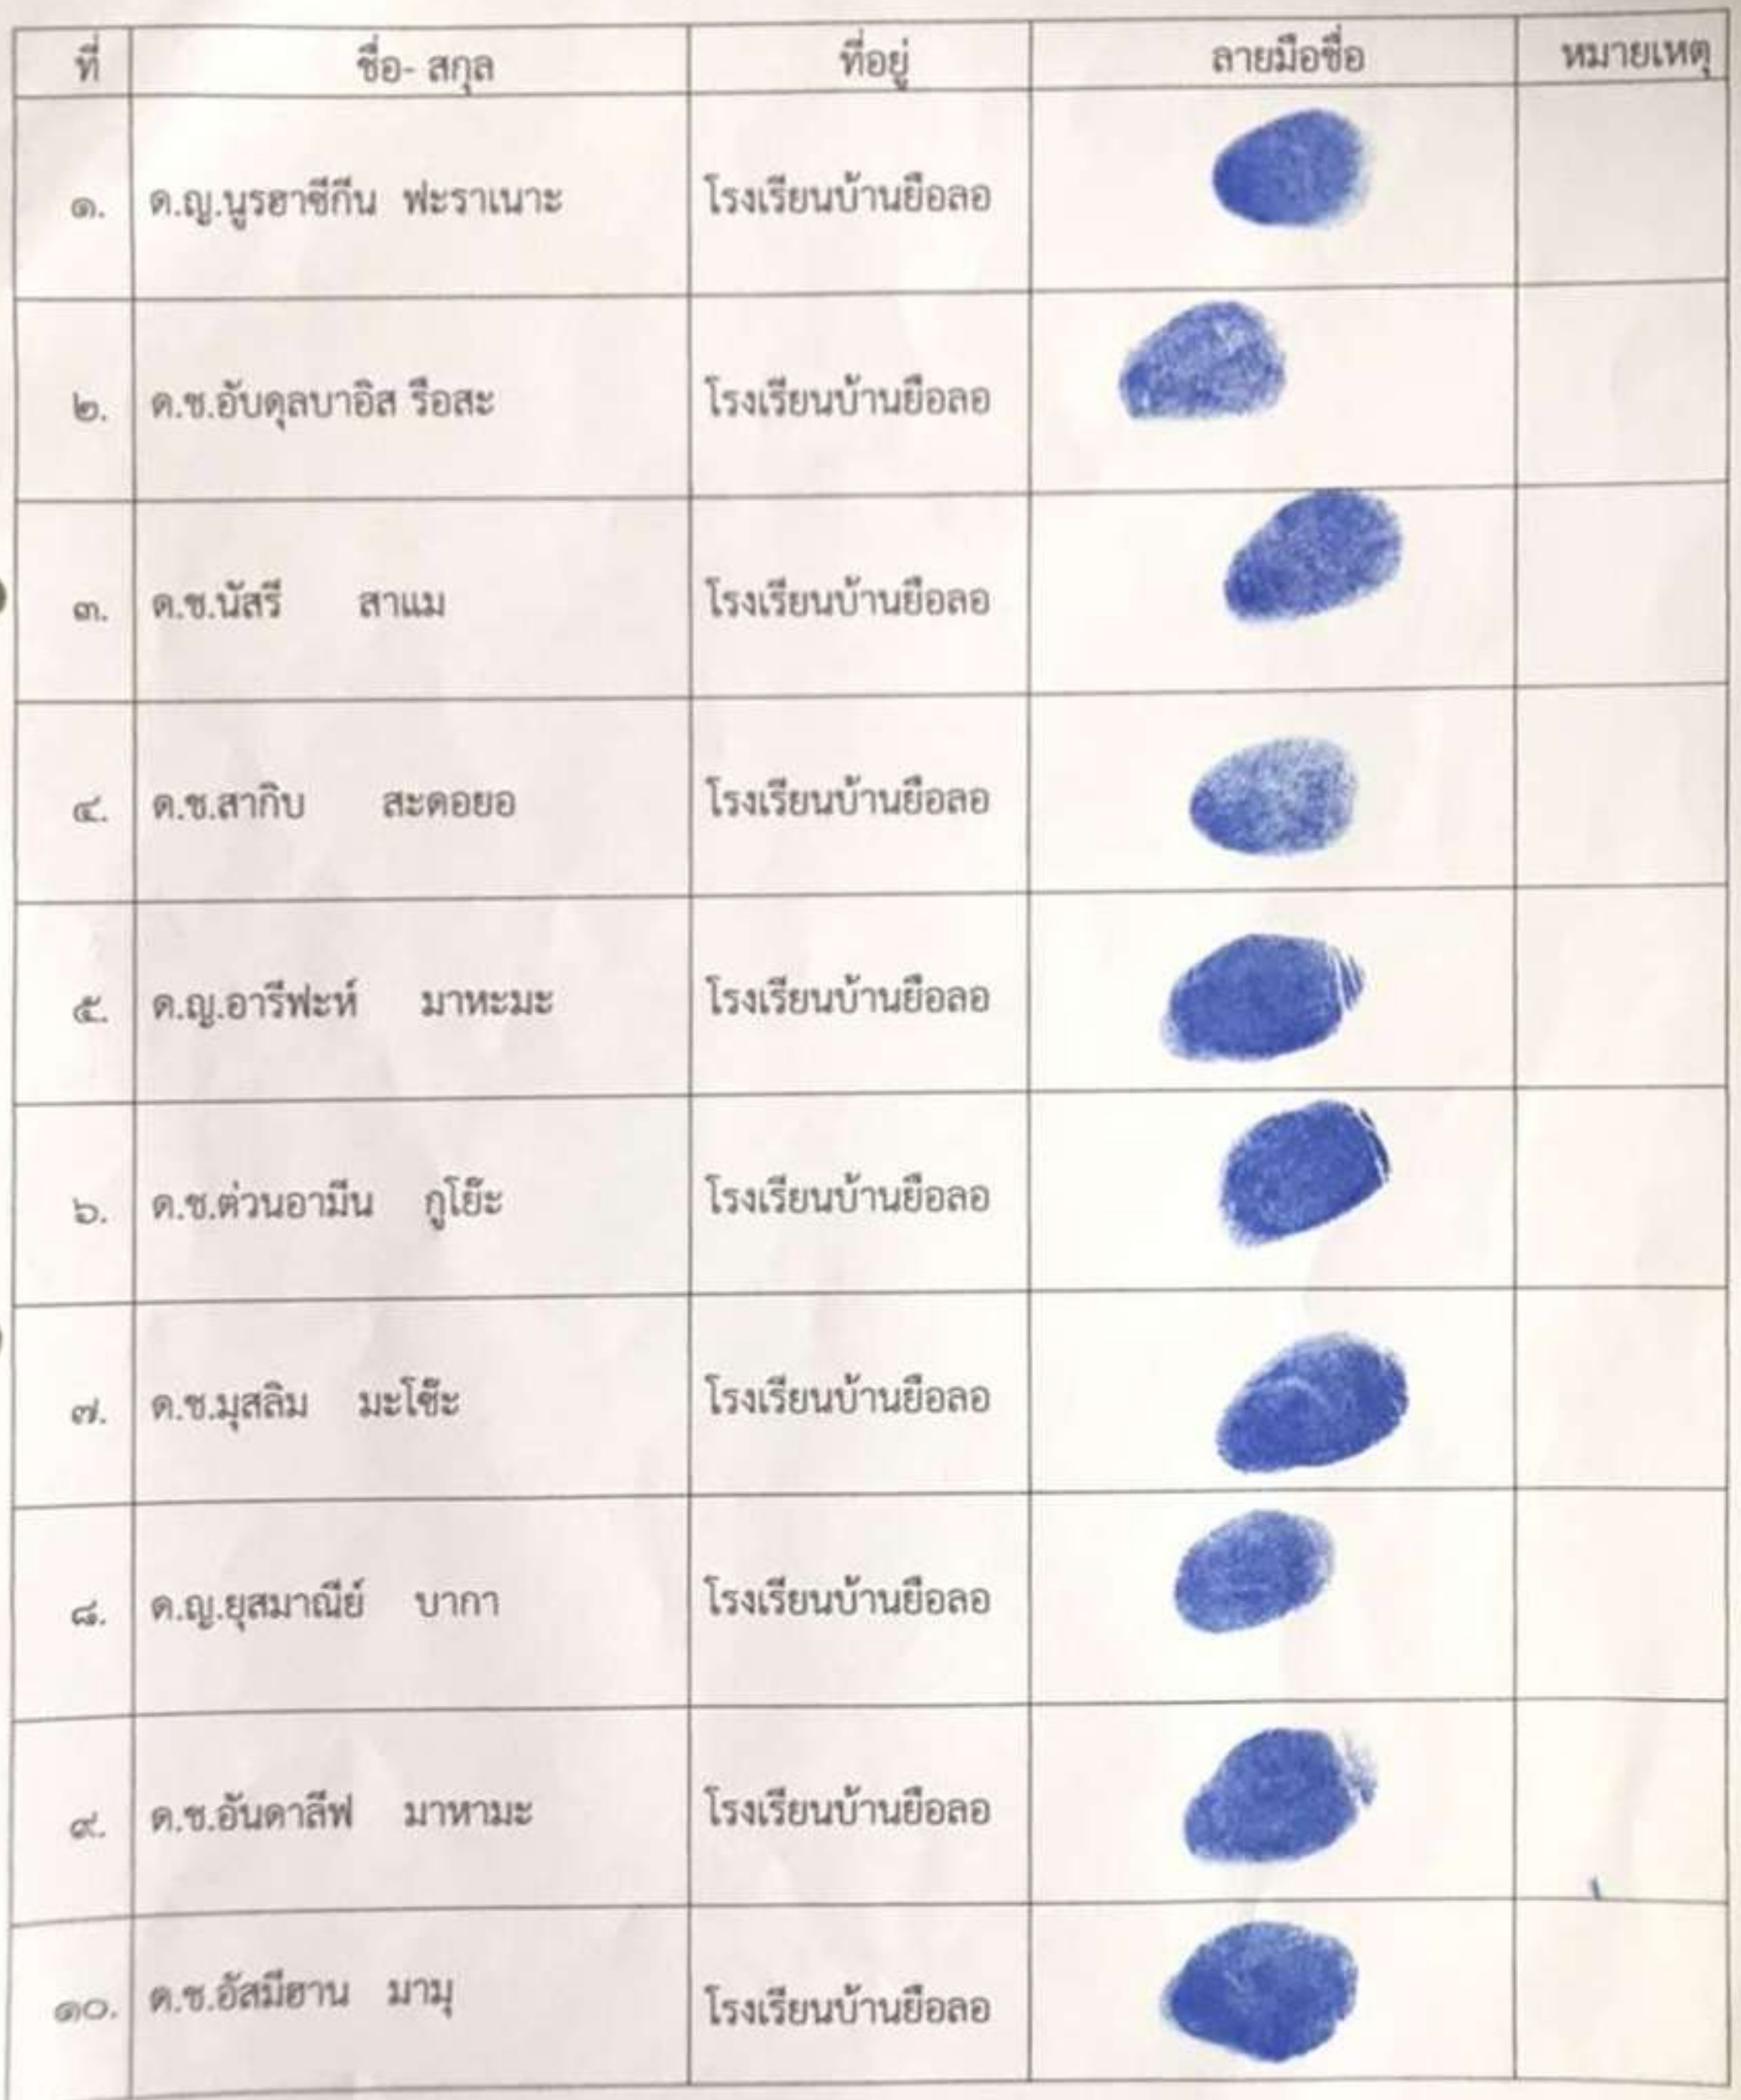 ที่ ชื่อ- สกุล ที่อยู่ ลายมือชื่อ หมายเหตุ
๑. ด.ญ.นูรฮาซีกีน ฟะราเนาะ โรงเรียนบ้านยือลอ
๒. ด.ช.อับดุลบาอิส รือสะ โรงเรียนบ้านยือลอ
๓. ด.ช.นัสรี สาแม โรงเรียนบ้านยือลอ
๔. ด.ช.สากิบ สะดอยอ โรงเรียนบ้านยือลอ
๕. ด.ญ.อารีฟะห์ มาหะมะ โรงเรียนบ้านยือลอ
๖. ด.ช.ต่วนอามีน กูโย๊ะ โรงเรียนบ้านยือลอ
๗. ด.ช.มุสลิม มะโซ๊ะ โรงเรียนบ้านยือลอ
๘. ด.ญ.ยุสมาณีย์ บากา โรงเรียนบ้านยือลอ
๙. ด.ช.อันดาลีฟ มาหามะ โรงเรียนบ้านยือลอ
๑๐. ด.ช.อัสมีฮาน มามุ โรงเรียนบ้านยือลอ